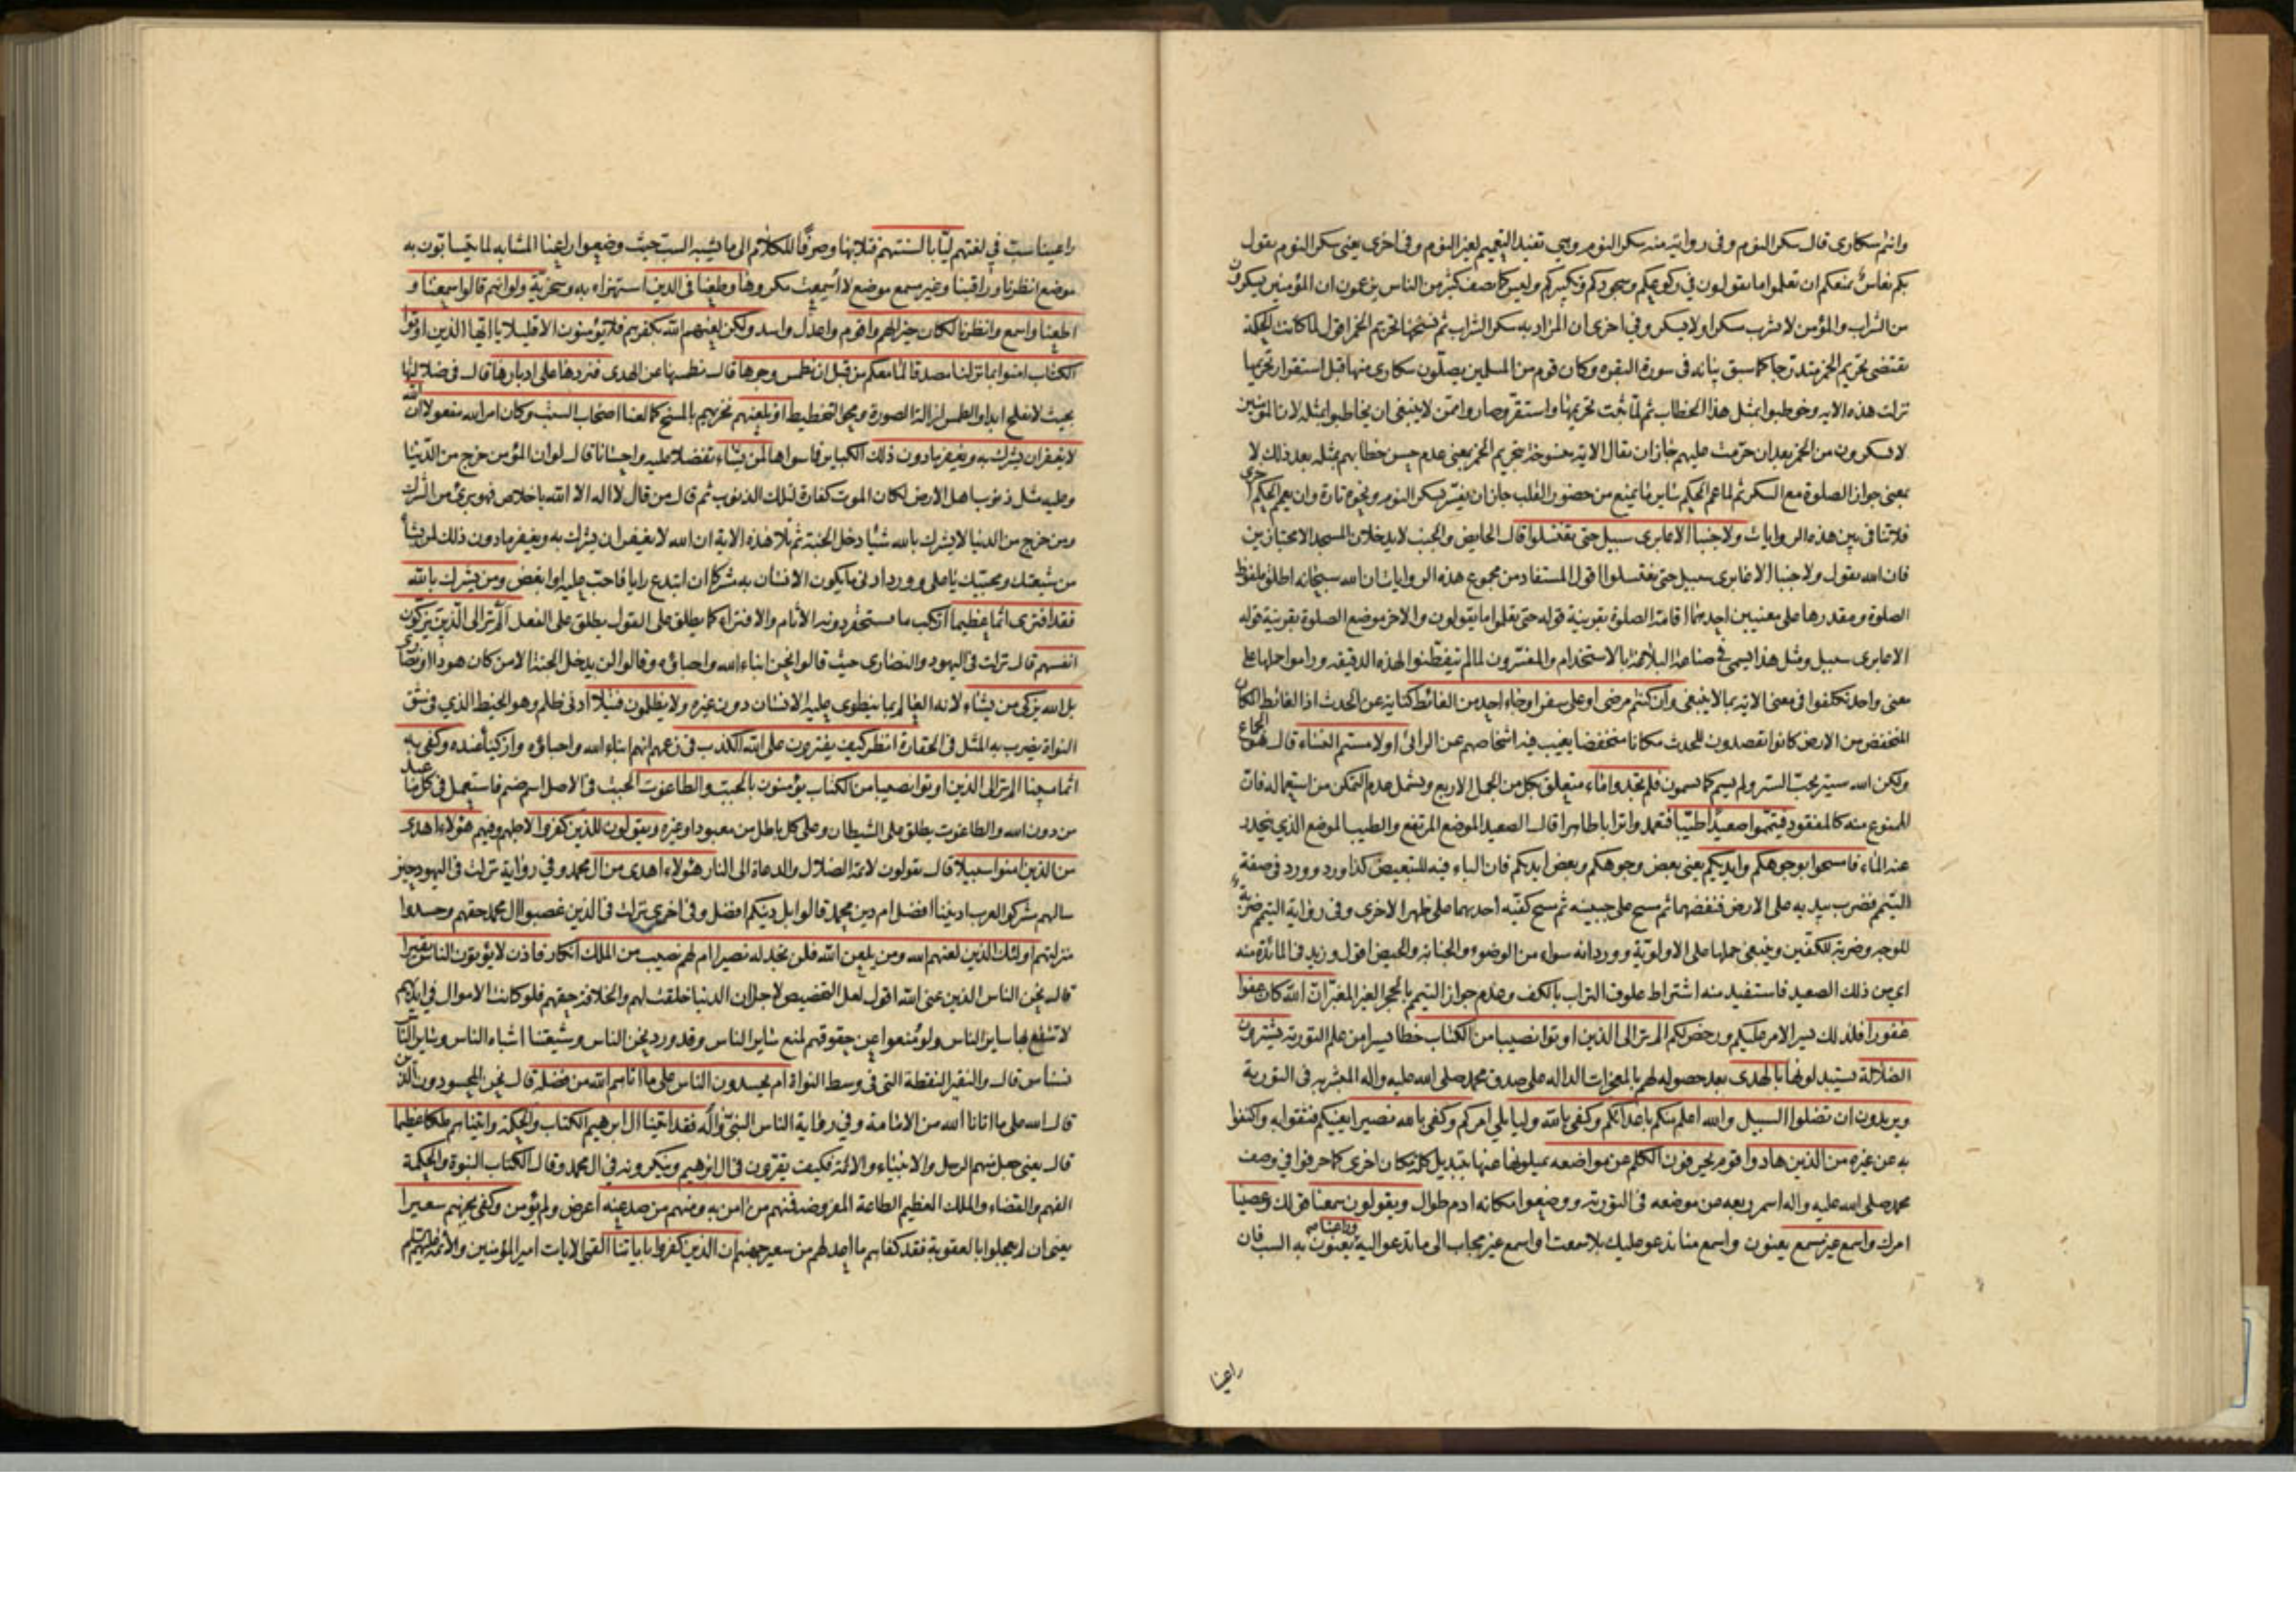 وانتم سكارى قال سكر النوم وفى رواية منه سكر النوم وهي تفيد التعميم لغير النوم وفى اخرى يعنى سكر النوم يقول
بكم نعاس يمنعكم ان تعلموا ما تقولون في ركوعكم وسجودكم وتكبيركم وليس كما يصف كثير من الناس يزعمون ان المؤمنين يسكرون
من الشراب والمؤمن لا يشرب مسكرا ولا يسكر وفى اخرى ان المراد به سكر الشراب ثم نسختها تحريم الخمر اقول لما كانت الحكمة
تقتضى تحريم الخمر متدرجا كما سبق بيانه فى سورة البقره وكان قوم من المسلمين يصلون سكارى منها قبل استقرار تحريمها
نزلت هذه الايه وخوطبوا بمثل هذا الخطاب ثم لما ثبت تحريمها واستقر وصاروا ممن لا ينبغى ان يخاطبوا بمثله لان المؤمنين
لا يسكرون من الخمر بعد ان حرمت عليهم جاز ان يقال الاية منسوخة بتحريم الخمر بمعنى عدم حسن خطابهم بمثله بعد ذلك لا
بمعنى جواز الصلوة مع السكر ثم لما عم الحكم ساير ما يمنع من حضور القلب جاز ان يفسر بسكر النوم ونحوه تارة وان يعم الحكم اخرى
فلا تنافى بين هذه الروايات ولا جنبا الا عابرى سبيل حتى تغتسلوا قال الحايض والجنب لا يدخلان المسجد الا مجتازين
فان الله يقول ولا جنبا الا عابرى سبيل حتى تغتسلوا اقول المستفاد من مجموع هذه الروايات ان الله سبحانه اطلق لفظ
الصلوة ومقدرها على معنيين احدهما اقامة الصلوة بقرينة قوله حتى تعلموا ما تقولون والاخر موضع الصلوة بقرينة قوله
الا عابرى سبيل ومثل هذا يسمى في صناعة البلاغة بالاستخدام والمفسرون لما لم يتفطنوا لهذه الدقيقه وراموا حملها على
معنى واحد تكلفوا فى معنى الاية بما لا ينبغى وان كنتم مرضى او على سفر او جاء احد من الغائط كناية عن الحدث اذا الغائط المكان
المنخفض من الارض كانوا يقصدون للحدث مكانا منخفضا يغيب فيه اشخاصهم عن الرائى او لامستم النساء قال هو الجماع
ولكن الله ستير يحب الستر ولم يسم كما تسمون فلم تجدوا ماء متعلق بكل من الجمل الاربع ويشمل عدم التمكن من استعماله فان
الممنوع منه كالمفقود فتيمموا صعيدا طيبا فتعمدوا ترابا طاهرا قال الصعيد الموضع المرتفع والطيب الموضع الذي ينحدر
عنه الماء فامسحوا بوجوهكم وايديكم يعنى بعض وجوهكم وبعض ايديكم فان الباء فيه للتبعيض كذا ورد وورد فى صفة
التيمم فضرب بيديه على الارض فنفضهما ثم مسح على جبينه ثم مسح كفيه احديهما على ظهر الاخرى وفى رواية التيمم ضربة
للوجه وضربة للكفين وينبغى حملها على الاولوية وورد انه سواء من الوضوء والجنابة والحيض اقول وزيد فى المائدة منه
اي من ذلك الصعيد فاستفيد منه اشتراط علوق التراب بالكف وعدم جواز التيمم بالحجر الغير المغبر ان الله كان عفوا
غفورا فلذلك يسر الامر عليكم ورخص لكم الم تر الى الذين اوتوا نصيبا من الكتاب حظا يسيرا من علم التورية يشترون
الضلالة يستبدلونها بالهدى بعد حصوله لهم بالمعجزات الداله على صدق محمد صلى الله عليه واله المبشر به فى التورية
ويريدون ان تضلوا السبيل والله اعلم منكم باعدائكم وكفى بالله وليا يلي امركم وكفى بالله نصيرا يعينكم فثقوا به واكتفوا
به عن غيره من الذين هادوا قوم يحرفون الكلم عن مواضعه يميلونها عنها بتبديل كلمة مكان اخرى كما حرفوا في وصف
محمد صلى الله عليه واله اسمر ربعه من موضعه فى التورية ووضعوا مكانه ادم طوال ويقولون سمعنا قولك وعصينا
امرك واسمع غير مسمع يعنون واسمع منا ندعو عليك بلا سمعت او اسمع غير مجاب الى ما تدعو اليه وراعنا يعنون به السب فان
راعينا
راعينا سب في لغتهم ليا بالسنتهم فتلا بها وصرفا للكلام الى ما يشبه السب حيث وضعوا راعنا المشابه لما يتسابون به
موضع انظرنا وراقبنا وغير مسمع موضع لا اسمعت مكروها وطعنا فى الدين استهزاء به وسخرية ولو انهم قالوا سمعنا و
اطعنا واسمع وانظرنا لكان خيرا لهم واقوم واعدل واسد ولكن لعنهم الله بكفرهم فلا يؤمنون الا قليلا يا ايها الذين اوتوا
الكتاب امنوا بما نزلنا مصدقا لما معكم من قبل ان نطمس وجوها قال نطمسها عن الهدى فنردها على ادبارها قال فى ضلالتها
بحيث لا يفلح ابدا والطمس ازالة الصورة ومحو التخطيط او نلعنهم نخزيهم بالمسخ كما لعنا اصحاب السبت وكان امر الله مفعولا ان الله
لا يغفر ان يشرك به ويغفر ما دون ذلك الكباير فما سواها لمن يشاء تفضلا عليه واحسانا قال لو ان المؤمن خرج من الدنيا
وعليه مثل ذنوب اهل الارض لكان الموت كفارة لتلك الذنوب ثم قال من قال لا اله الا الله باخلاص فهو برئ من الشرك
ومن خرج من الدنيا لا يشرك بالله شيئا دخل الجنة ثم تلا هذه الاية ان الله لا يغفر ان يشرك به ويغفر ما دون ذلك لمن يشاء
من شيعتك ومحبيك يا على وورد ادنى ما يكون الانسان به مشركا ان ابتدع رايا فاحب عليه او ابغض ومن يشرك بالله
فقد افترى اثما عظيما ارتكب ما يستحقر دونه الاثام والافتراء كما يطلق على القول يطلق على الفعل الم تر الى الذين يزكون
انفسهم قال نزلت فى اليهود والنصارى حيث قالوا نحن ابناء الله واحباؤه وقالوا لن يدخل الجنة الا من كان هودا او نصارى
بل الله يزكى من يشاء لانه العالم بما ينطوى عليه الانسان دون غيره ولا يظلمون فتيلا ادنى ظلم وهو الخيط الذي فى شق
النواة يضرب به المثل فى الحقارة انظر كيف يفترون على الله الكذب فى زعمهم انهم ابناء الله واحباؤه وازكياء عنده وكفى به
اثما مبينا الم تر الى الذين اوتوا نصيبا من الكتاب يؤمنون بالجبت والطاغوت الجبت فى الاصل اسم صنم فاستعمل فى كل ما عبد
من دون الله والطاغوت يطلق على الشيطان وعلى كل باطل من معبود او غيره ويقولون للذين كفروا لاجلهم وفيهم هؤلاء اهدى
من الذين امنوا سبيلا قال يقولون لائمة الضلال والدعاة الى النار هؤلاء اهدى من ال محمد وفي رواية نزلت فى اليهود حين
سالهم مشركوا العرب اديننا افضل ام دين محمد قالوا بل دينكم افضل وفى اخرى نزلت فى الذين غصبوا ال محمد حقهم وحسدوا
منزلتهم اولئك الذين لعنهم الله ومن يلعن الله فلن تجد له نصيرا ام لهم نصيب من الملك انكار فاذن لا يؤتون الناس نقيرا
قال نحن الناس الذين عنى الله اقول لعل التخصيص لاجل ان الدنيا خلقت لهم والخلافة حقهم فلو كانت الاموال فى ايديهم
لانتفع بها ساير الناس ولو منعوا عن حقوقهم لمنع ساير الناس وقد ورد نحن الناس وشيعتنا اشباه الناس وساير الناس
نسناس قال والنقير النقطة التى فى وسط النواة ام يحسدون الناس على ما اتاهم الله من فضله قال نحن المحسودون الذين
قال الله على ما اتانا الله من الامامة وفي رواية الناس النبى واله فقد اتينا ال ابرهيم الكتاب والحكمة واتيناهم ملكا عظيما
قال يعنى جعل منهم الرسل والانبياء والائمة فكيف يقرون فى ال ابرهيم وينكرونه فى ال محمد وقال الكتاب النبوة والحكمة
الفهم والقضاء والملك العظيم الطاعة المفروضه فمنهم من امن به ومنهم من صد عنه اعرض ولم يؤمن وكفى بجهنم سعيرا
يعنى ان لم يعجلوا بالعقوبة فقد كفاهم ما اعد لهم من سعير جهنم ان الذين كفروا باياتنا القمى الايات امير المؤمنين والائمة عليهم السلم